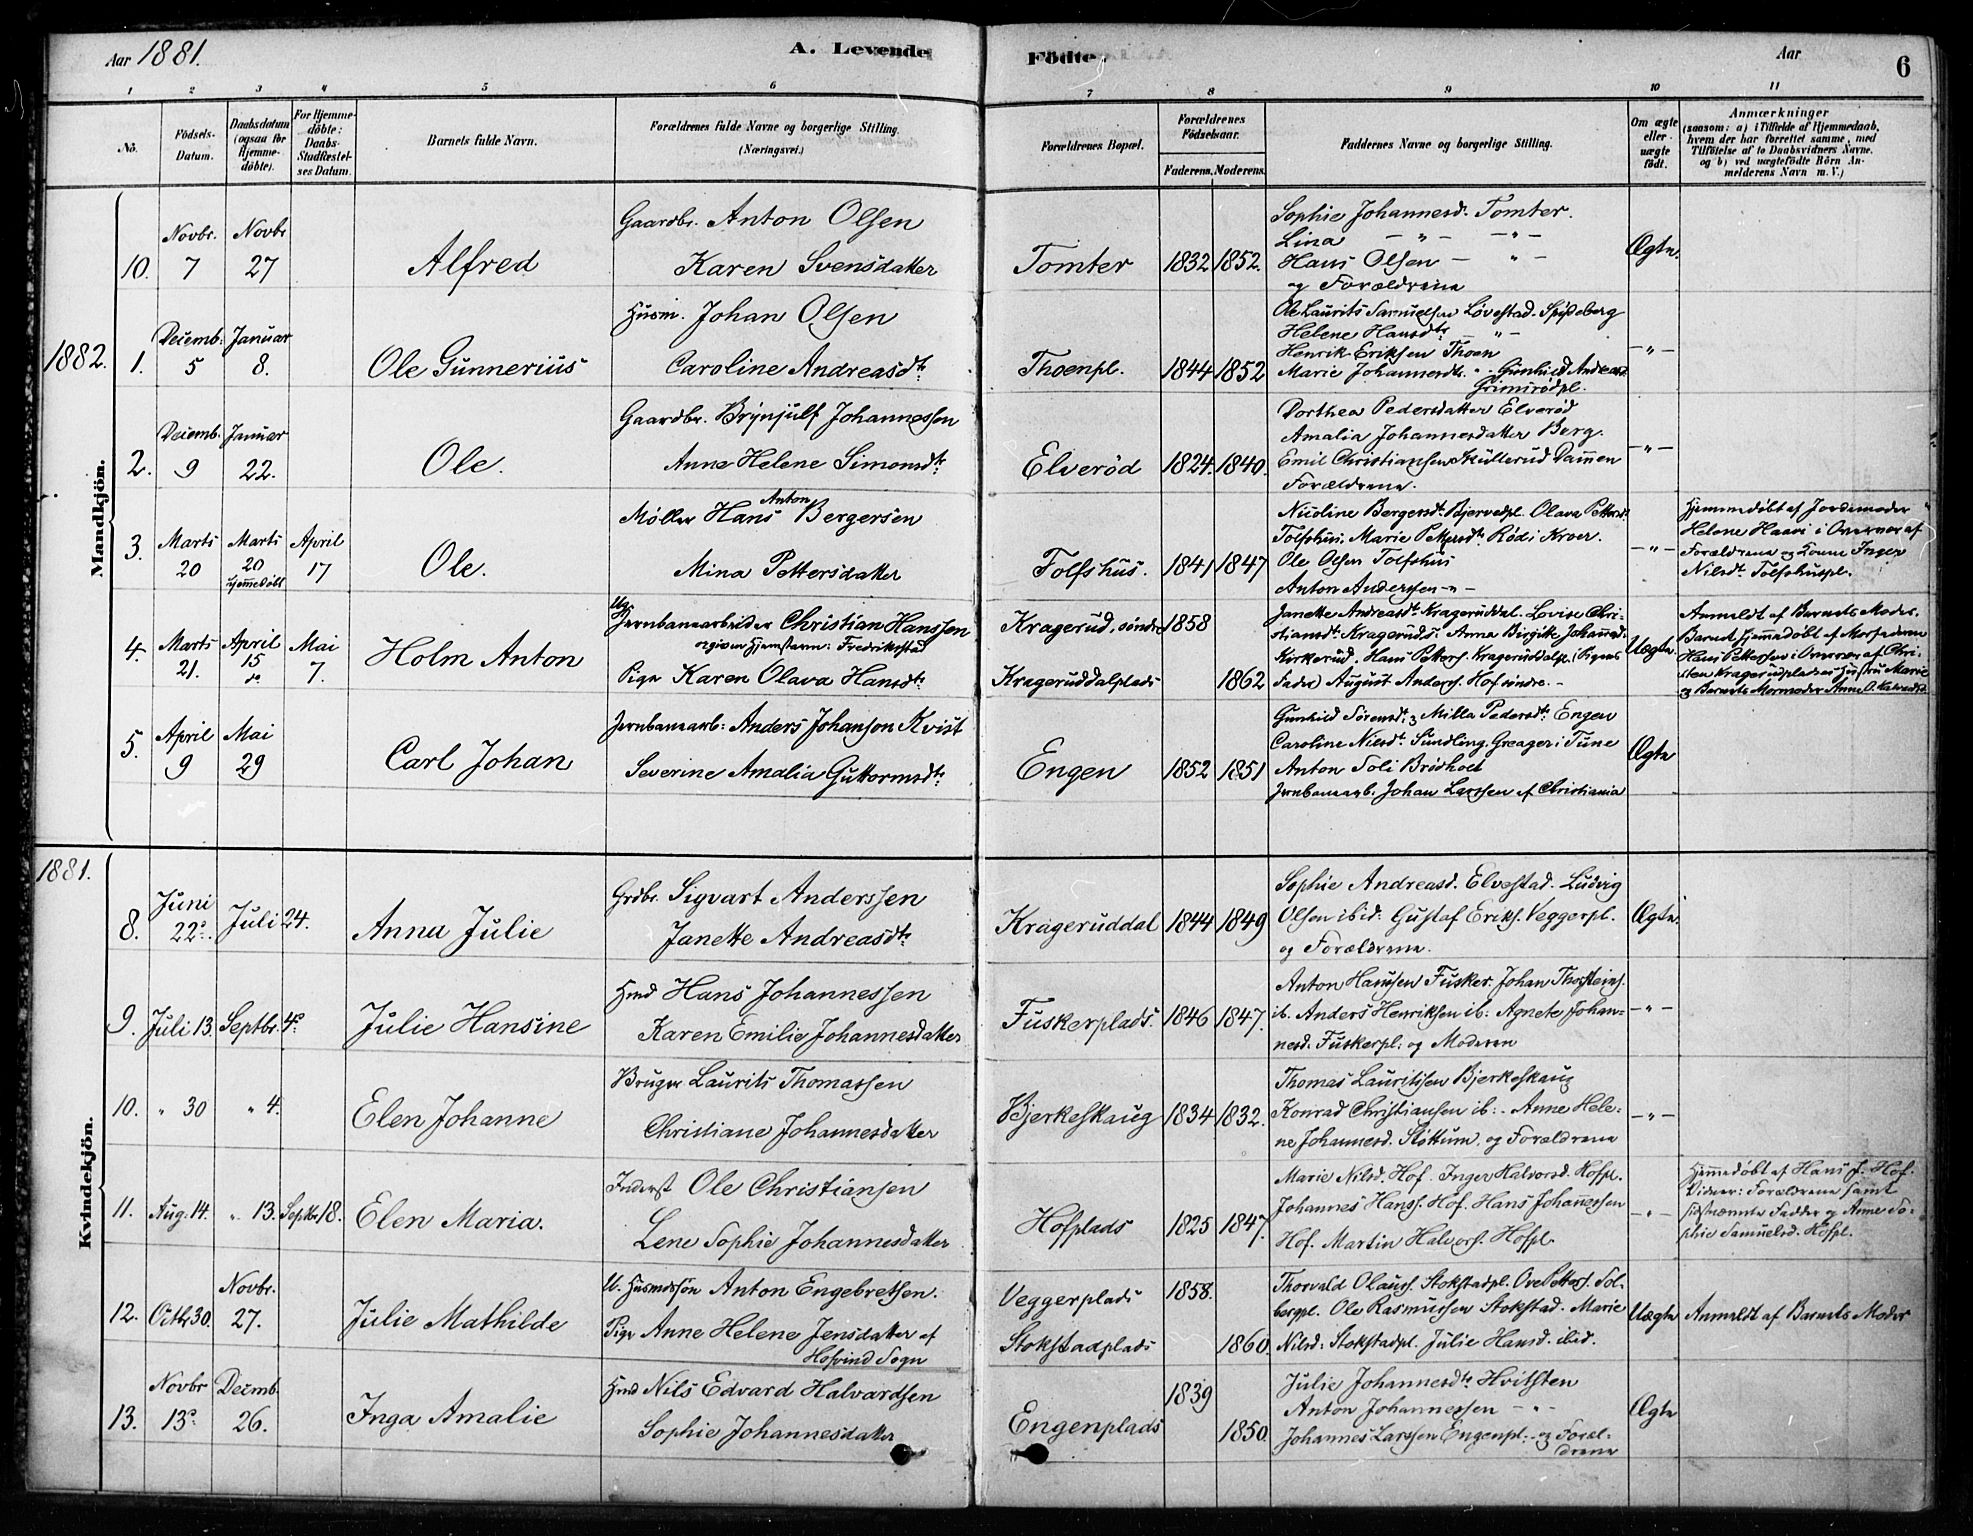 Aar 1881.
A. Levende
Födte.
Aar
6
1 2 3 4 5 6 7 8 9 10 11
No.
Födsels-Datum.
Daabsdatum (ogsaa for Hjemme-döbte).
For Hjemme-döbte: Daabs-Stadfæstel-ses Datum.
Barnets fulde Navn.
Forældrenes fulde Navne og borgerlige Stilling.
(Næringsvei.)
Forældrenes Bopæl.
Forældrenes Födselsaar.
Faderens. Moderens.
Faddernes Navne og borgerlige Stilling.
Om ægte eller uægte födt.
Anmærkninger
(saasom: a) i Tilfælde af Hjemmedaab,
hvem der har forrettet samme, med
Tilföielse af to Daabsvidners Navne,
og b) ved uægtefödte Börn An-
melderens Navn m. V.)
Mandkjön.
10. Novbr. 7 Novbr 27 Alfred
Gaardbr. Anton Olsen
Karen Svensdatter
Tomter 1832 1852.
Sophie Johannesd. Tomter.
Lina - " - - " -
Hans Olsen - " -
og Forældrene
Ægte.
1882.
1. Decemb. 5 Januar 8. Ole Gunnerius
Husm. Johan Olsen
Caroline Andreasdtr
Thoenpl. 1844 1852
Ole Laurits Samuelsen Løvestad. Spydeberg
Helene Hansdtr - " -
Henrik Eriksen Thoen
Marie Johannesdtr. " . Gunhild Andreasd.
Grimsrødpl.
- " -
2. Decemb. 9 Januar 22. Ole.
Gaardbr. Brynjulf Johannessen
Anne Helene Simonsdtr
Elverød 1824. 1840.
Dorthea Pedersdatter Elverød
Amalia Johannesdatter Berg.
Emil Christiansen Skullerud Dammen
Forældrene.
- " -
3. Marts 20 Marts 20 hjemmedøbt April 17 Ole.
Møller Hans Anton Bergersen
Mina Pettersdatter
Tolfshus. 1841 1847
Nicoline Bergersdtr Bjervedpl. Olava Pettersd.
Tolfshus. Marie Pettersdtr Rød i Kroer.
Ole Olsen Tolfshus
Anton Andersen - " -
- " -
Hjemmedøbt af Jordemoder
Helene Haavi i Overvær af
Forældrene og Kone Inger
Nilsdtr Tolfshuspl.
4. Marts 21. April 15 do Mai 7. Holm Anton
Ug. Jernbanearbeider Christian Hanssen
opgiven Hjemstavn: Fredriksstad
Pige Karen Olava Hansdtr
Kragerud, søndre 1858
Krageruddalplads 1862
Janette Andreasdtr Krageruddal. Lovise Chri-
stiansdtr Kragerudsr Anna Birgitte Johannesd.
Kirkerud. Hans Petters. Krageruddalpl. Pigens
Fader August Anders. Hof søndre. -
Uægte
Anmeldt af Barnets Moder.
Barnet hjemmedøbt af Morfaderen
Hans Pettersen i Overvær af Chri-
sten Kragerudpladsens Hustru Marie
og Barnets Mormoder Anne O. Halvorsd.
5. April 9 Mai 29 Carl Johan
Jernbanearb: Anders Johanson Kvist
Severine Amalia Guttormsdtr
Engen 1852 1851
Gunhild Sørensdtr og Milla Pedersdtr Engen
Caroline Nilsdtr Sundling, Greager i Tune
Anton Soli Brødholt
Jernbanearb. Johan Larssen af Christiania
Ægte
1881.
Kvindekjön.
8. Juni 22. Juli 24. Anna Julie
Grdbr. Sigvart Anderssen
Janette Andreasdtr
Krageruddal 1844 1849
Sophie Andreasd. Elvestad. Ludvig
Olsen ibid: Gustaf Eriks. Veggerpl.
og Forældrene.
Ægte.
9. Juli 13. Septbr. 4. Julie Hansine
Hmd Hans Johannessen
Karen Emilie Johannesdatter
Fuskerplads. 1846 1847.
Anton Hanssen Fusker. Johan Thorsteins.
ib. Anders Henriksen ib: Agnete Johan-
nesd. Fuskerpl: og Moderen
- " -
10. " 30 " 4. Elen Johanne
Bruger Laurits Thomassen
Christiane Johannesdatter
Bjerkeskaug 1834 1832.
Thomas Lauritssen Bjerkeskaug
Konrad Christiansen ib: - Anne Hele-
ne Johannesd. Støttum. og Forældrene
- " -
11. Aug. 14. " 13. Septbr 18. Elen Maria.
Inderst Ole Christiansen
Lene Sophie Johannesdatter
Hofplads 1825 1847.
Marie Nilsd. Hof. Inger Halvorsd. Hofpl.
Johannes Hanss. Hof. Hans Johannessen
Hof. Martin Halvors. Hofpl.
- " -
Hjemmedøbt af Hans J. Hof.
Vidner: Forældrene samt
sidstnævnte Fadder og Anne So-
phie Samuelsd. Hofpl.
12. Octbr 30. Novbr. 27. Julie Mathilde
U. Husmdssøn Anton Engebretsen.
Pige Anne Helene Jensdatter af
Hofvind Sogn
Veggerplads 1858.
Stokstadplads 1860.
Thorvald Olauss. Stokstadpl. Ove Petters. Sol-
bergpl. Ole Rasmussen Stokstad. Marie
Nilsd: Stokstadpl. Julie Hansd. ibid.
Uægte
Anmeldt af Barnets Moder
13. Novbr 13. Decmb. 26. Inga Amalie
Hmd Nils Edvard Halvardsen
Sophie Johannesdatter
Engenplads 1839 1850.
Julie Johannesdtr Hvitsten
Anton Johannessen - " -
Johannes Larssen Engenpl. - og Foræl-
drene
Ægte